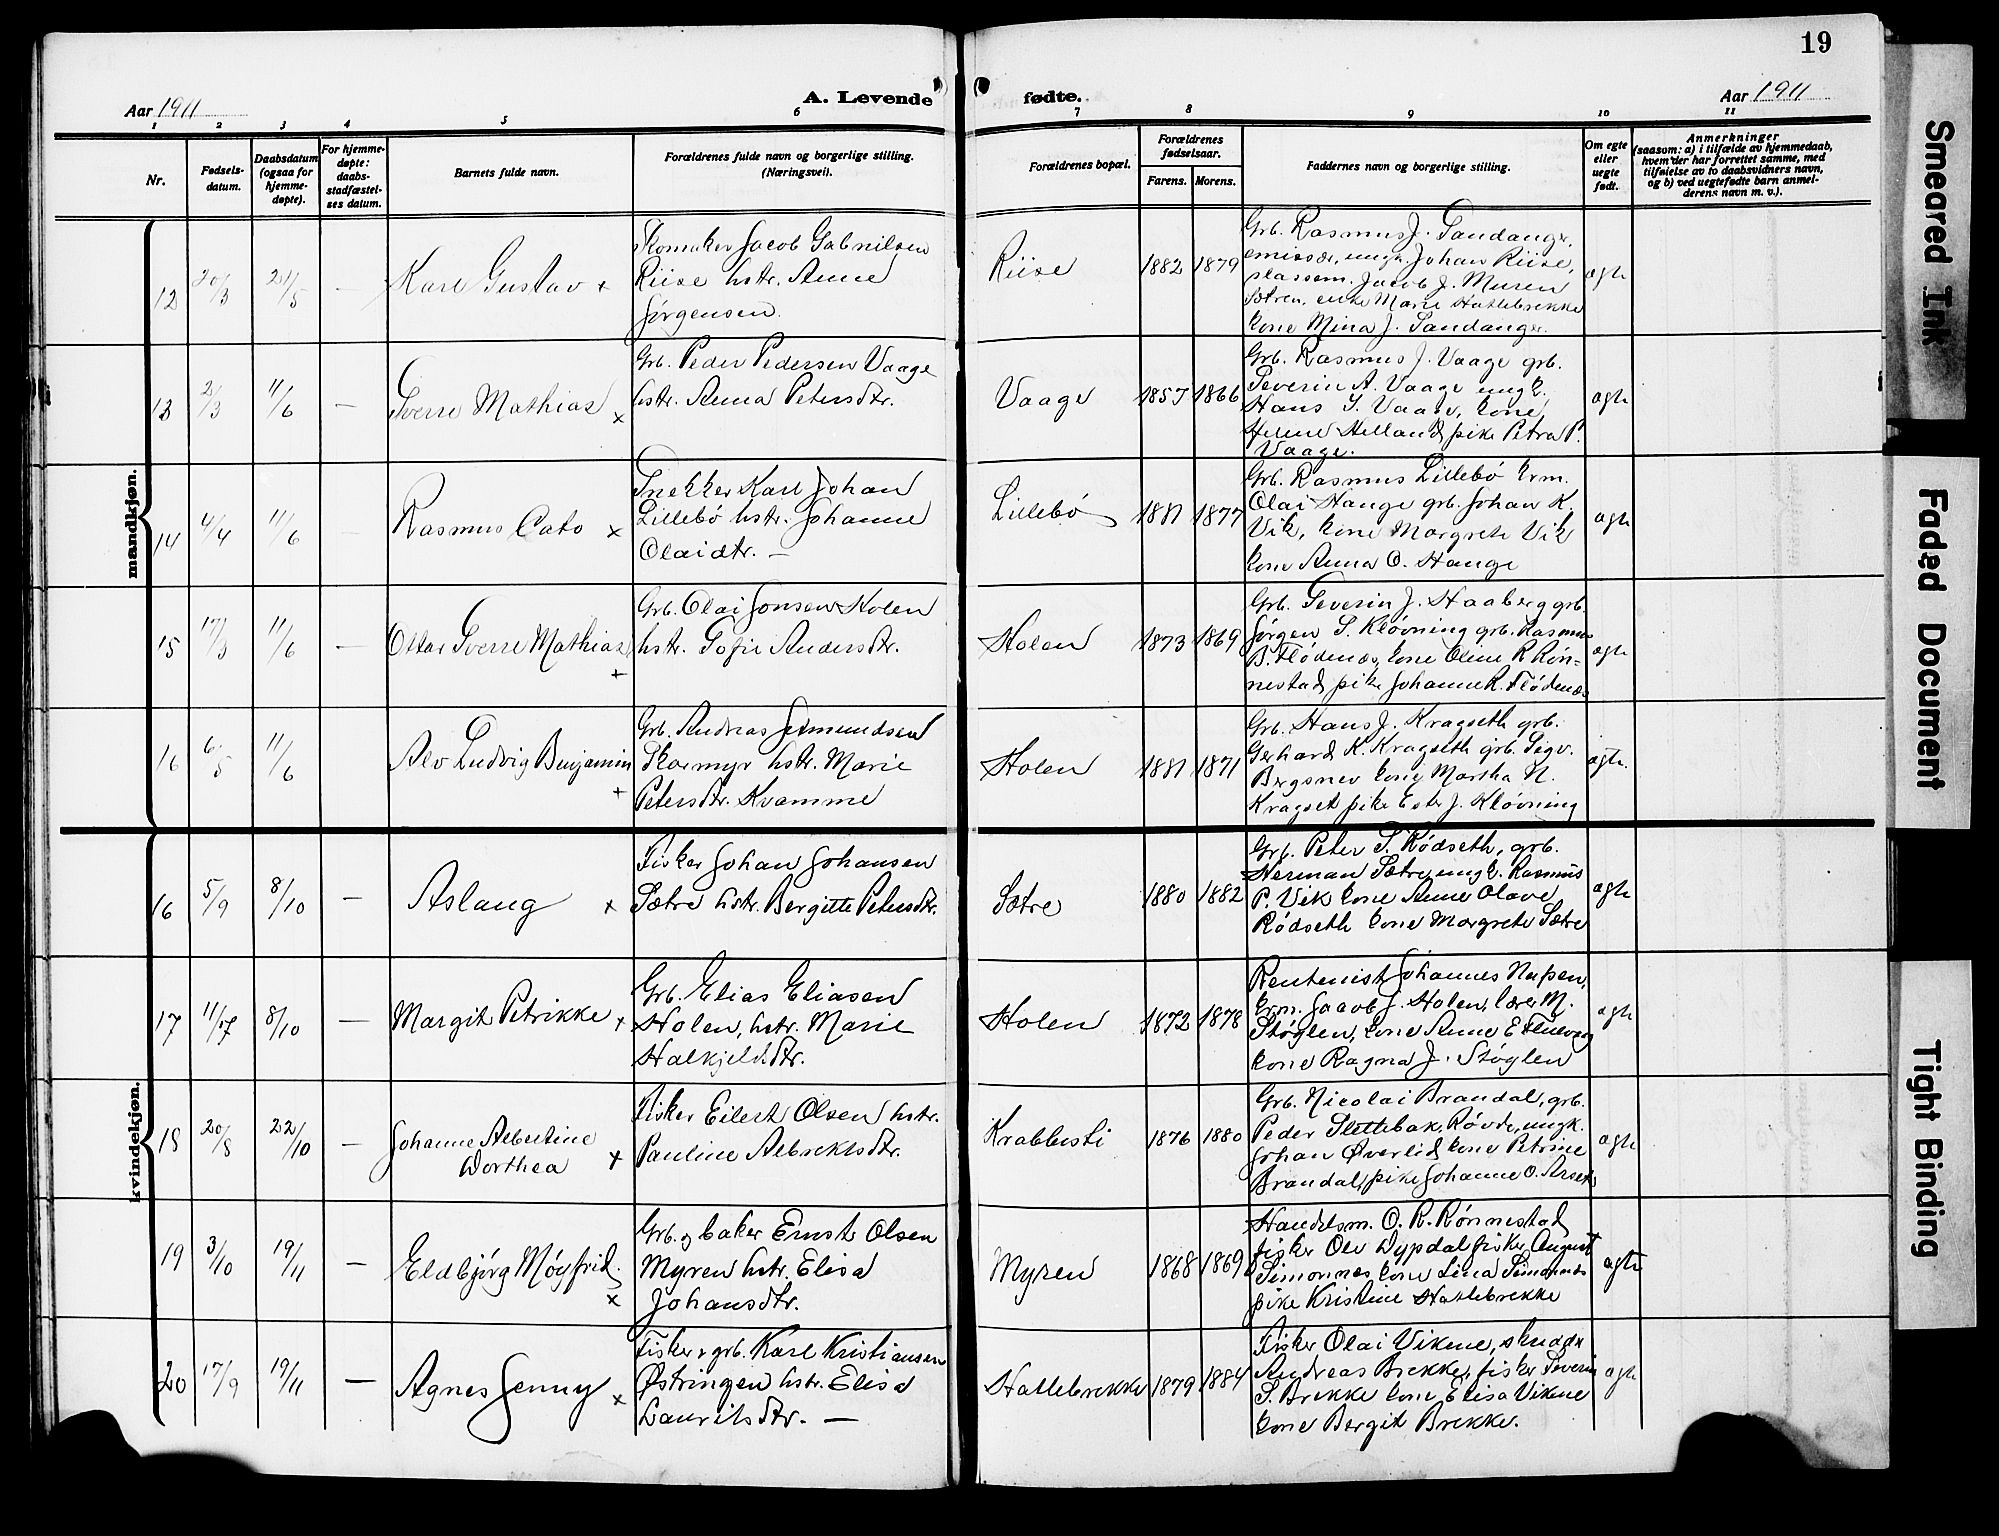 19
Aar 1911
A. Levende
fødte.
Aar 1911
1 2 3 4 5 6 7 8 9 10 11
Nr.
Fødsels-
datum.
Daabsdatum
(ogsaa for
hjemme-
døpte).
For hjemme-
døpte:
daabs-
stadfæstel-
ses datum.
Barnets fulde navn.
Forældrenes fulde navn og borgerlige stilling.
(Næringsvei).
Forældrenes bopæl.
Forældrenes
fødselsaar.
Farens. Morens.
Faddernes navn og borgerlige stilling.
Om egte
eller
uegte
født.
Anmerkninger
(saasom: a) i tilfælde av hjemmedaab,
hvem der har forrettet samme, med
tilføielse av to daabsvidners navn,
og b) ved uegtefødte barn anmel-
derens navn m. v.).
mandkjøn.
12
20/3
21/5
—
Karl Gustav x
Skomaker Jacob Gabrielsen
Riise hstr. Anne
Jørgensen.
Riise
1882
1879
Grb. Rasmus J. Sandanger,
emissær, ungk. Johan Riise,
plassem. Jacob J. Muren
Sætren, enke Marie Hatlebrekke
kone Mina J. Sandanger.
ægte
13
2/3
11/6
—
Sverre Mathias x
Grb. Peder Pedersen Vaage
hstr. Anna Petersdtr.
Vaage
1857
1866
Grb. Rasmus J. Vaage grb.
Severin A. Vaage ungk.
Hans S. Vaage, kone
Helene Helland, pike Petra P.
Vaage.
ægte
14
4/4
11/6
—
Rasmus Cato x
Snekker Karl Johan
Lillebø hstr. Johanne
Olaidtr. —
Lillebø
1881
1877
Grb. Rasmus Lillebø krm.
Olai Hauge grb. Johan K.
Vik, kone Margrete Vik
kone Anna O. Hauge
ægte
15
17/3
11/6
—
Ottar Sverre Mathias +
Grb. Olai Jonsen Holen
hstr. Sofie Andersdtr.
Holen
1873
1869
Grb. Severin J. Haaberg grb.
Jørgen S. Kløvning grb. Rasmus
B. Flødenæs, kone Oline R Røn-
nestad, pike Johanne R. Flødenæs
ægte
16
6/5
11/6
Alv Ludvig Benjamin +
Grb. Andreas Semundsen
Skarmyr hstr. Marie
Petersdtr. Kvamme
Holen
1881
1871
Grb. Hans J. Kragseth grb.
Gerhard K. Kragseth grb. Sigv.
Bergsnev kone Martha N.
Kragset pike Ester J. Kløvning
ægte.
kvindekjøn.
16
5/9
8/10
—
Aslaug x
Fisker Johan Johansen
Sætre hstr. Bergitte Petersdtr.
Sætre
1880
1882
Grb. Peter S. Rødseth, grb.
Herman Sætre, ungk. Rasmus
P. Vik kone Anne Olave
Rødseth kone Margrete Sætre
ægte
17
8/10
—
Margit Petrikke x
Grb. Elias Eliasen
Holen, hstr. Marie
Halkjeldsdtr.
Holen
1872
1878
Rentenist Johannes Nupen,
krm. Jacob J. Holen, lærer M.
Støylen, kone Anne E
kone Ragna J. Støylen
ægte
18
20/8
22/10
—
Johanne Albertine
Dorthea x
Fisker Eilert Olsen hstr.
Pauline Albrektsdtr.
Krabbesti
1876
1880
Grb. Nicolai Brandal, grb.
Peder Slettebak, Røvde, ungk.
Johan Øverlid kone Petrine
Brandal, pike Johanne O. Arset
ægte
19
3/10
19/11
—
Eldbjørg Møyfrid. x
Grb. og baker Ernst Olsen
Myren hstr. Elisa
Johansdtr.
Myren
1868
1869
Handelsm. O. R. Rønnestad
fisker Ole Dypdal fisker August
Simonnes kone Lina Simonnæs
pike Kristine Hatlebrekke
ægte
20
17/9
19/11
—
Agnes Jenny x
Fisker & grb. Karl Kristiansen
Østringen hstr. Elisa
Lauritsdtr. —
Hatlebrekke
1879
1884
Fisker Olai Vikene, skrædder
Andreas Brekke, fisker Severin
S. Brekke kone Elisa Vikene
kone Bergit Brekke.
ægte
Smeared Ink
Faded Document
Tight Binding